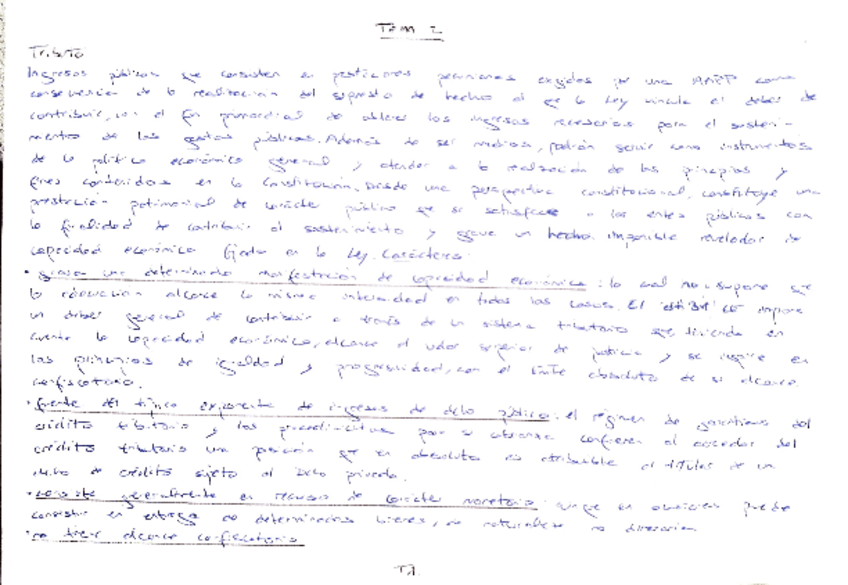 Tem 2
Tributo
Ingresos públicos que consisten en prestaciones pecuniarias exigidas por una AAPP como
consecuencia de la realización del supuesto de hecho al que la Ley vincula el deber de
contribuir, con el fin primordial de obtener los ingresos necesarios para el sosteni-
miento de los gastos públicos. Además de ser medios, podrán servir como instrumentos
de la política económica general y atender a la realización de los principios y
fines contenidos en la Constitución. Desde una perspectiva constitucional, constituye una
prestación patrimonial de carácter público que se satisface a los entes públicos con
la finalidad de contribuir al sostenimiento y grava un hecho imponible revelador de
capacidad económica fijado en la Ley. Carácteres:
· grava una determinada manifestación de capacidad económica: lo cual no supone que
la educación alcance la misma intensidad en todos los casos. El CE impone
un deber general de contribuir a través de un sistema tributario que teniendo en
cuenta la capacidad económica, alcance el valor superior de justicia y se inspire en
los principios de igualdad y progresividad, con el límite absoluto de su alcance
confiscatorio.
· del típico exponente de ingresos de dcho público: el régimen de garantías del
crédito tributario y los procedimientos para su cobranza confieren al acreedor del
crédito tributario una posición que en absoluto es atribuible al titular de un
de crédito sujeto al Dcho privado.
· consiste generalmente en recursos de carácter monetario: aunque en ocasiones puede
consistir en entrega de determinados bienes, de naturaleza no dineraria
· no tiene alcance confiscatorio
T.2.